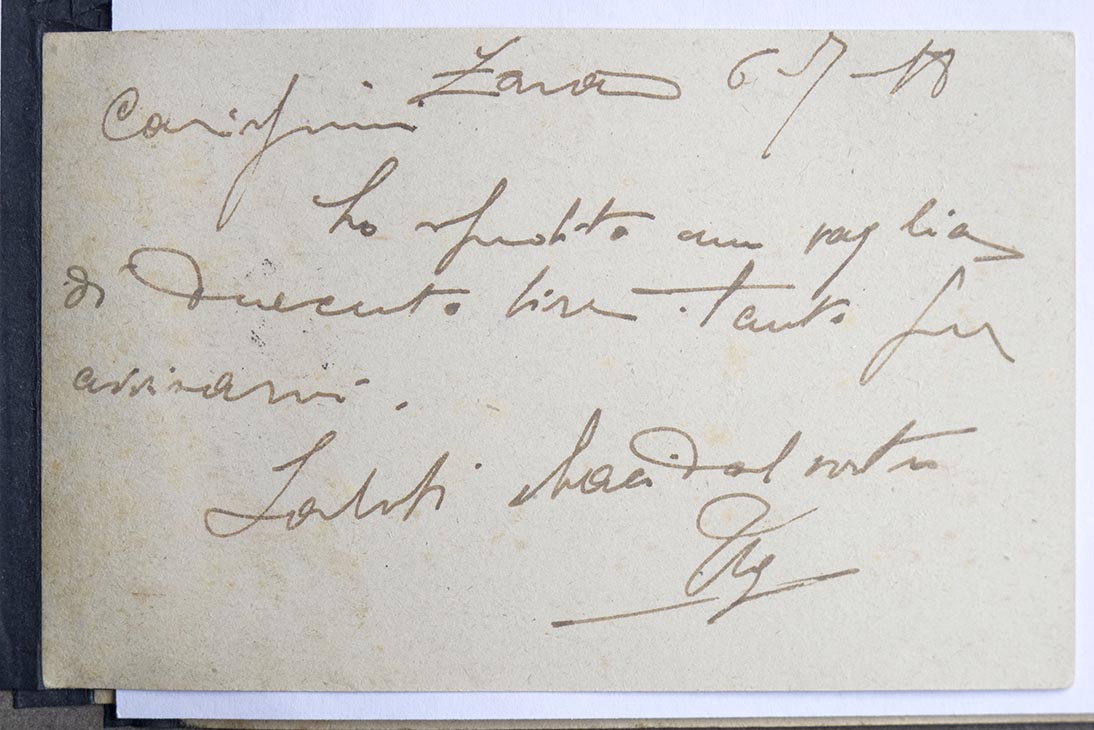 Zara 6 5/-18
Carissimi
ho spedito un vaglia
di Duecento lire tanto per
avvisarvi.
Saluti baci dal vostro